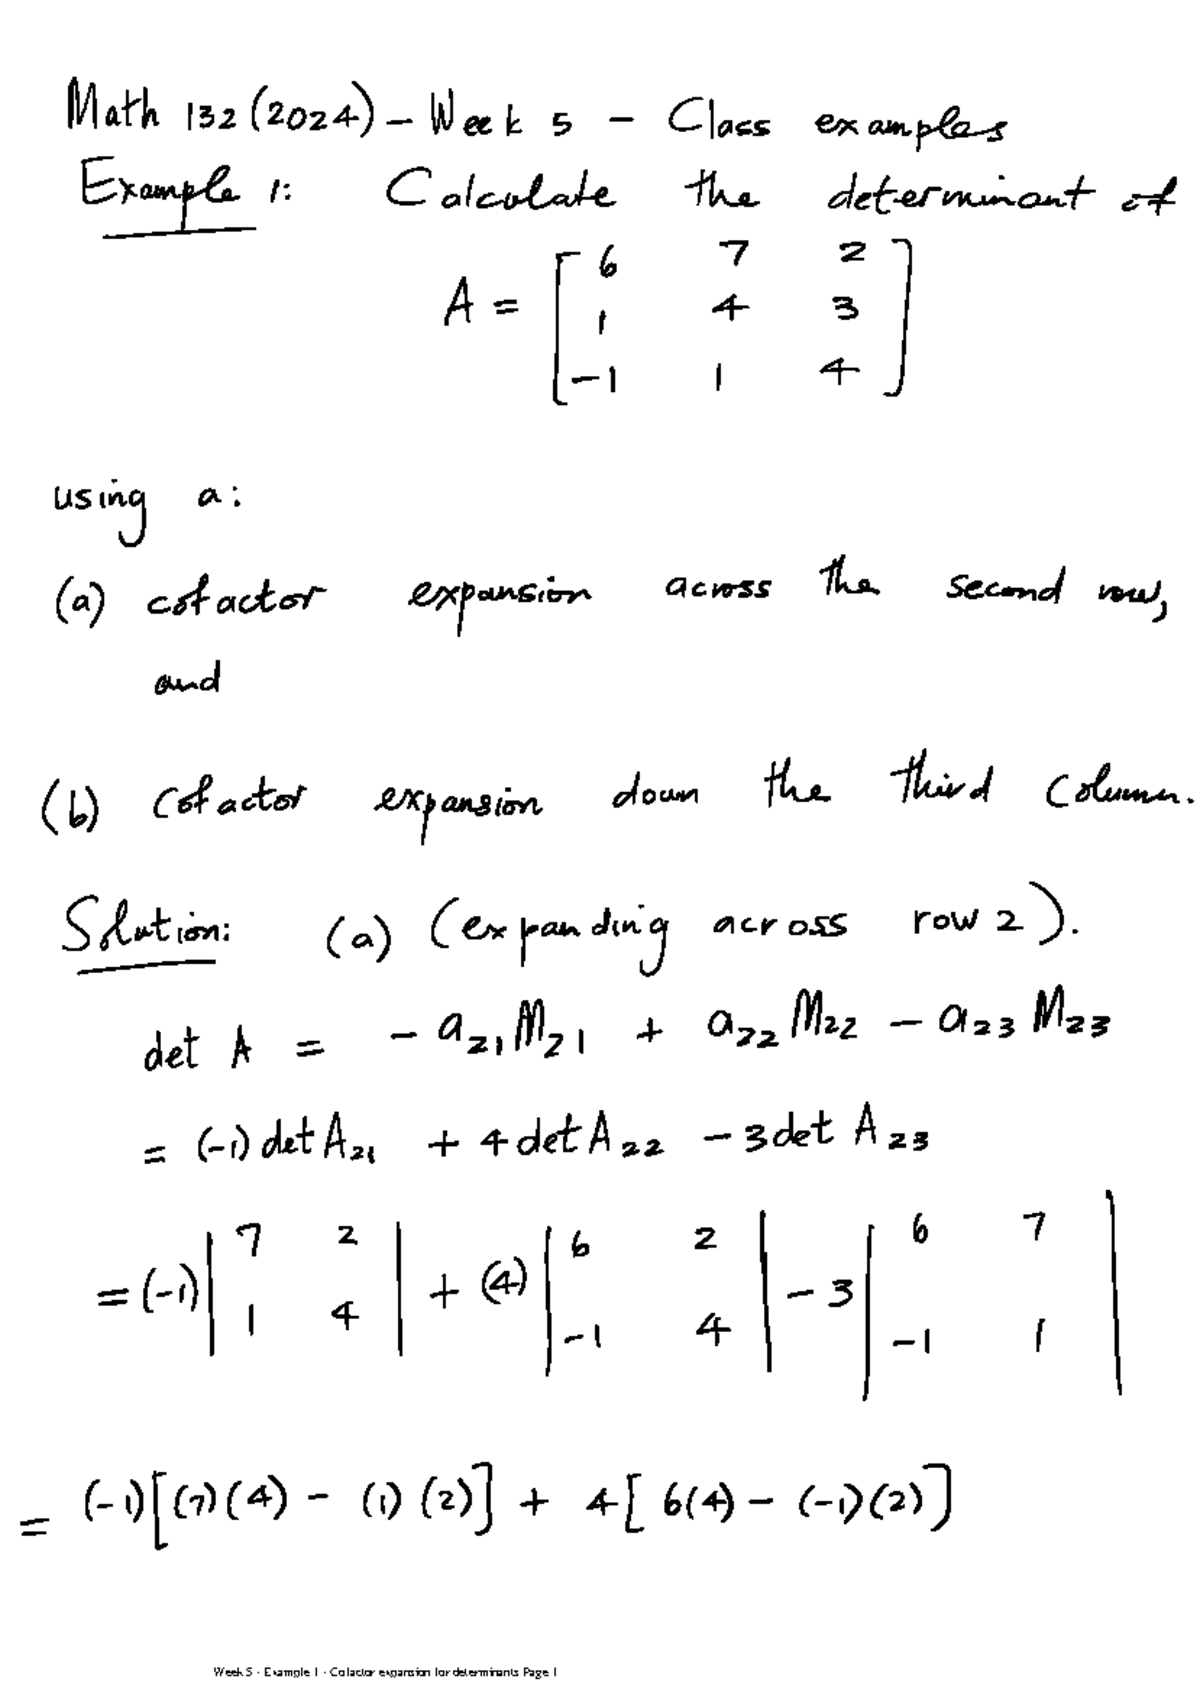 Math 132 (2024) - Week 5 - Class examples
Example 1: Calculate the determinant of
A = [ 6 7 2
1 4 3
-1 1 4 ]
using a:
(a) cofactor expansion across the second row,
and
(b) cofactor expansion down the third column.
Solution: (a) (expanding across row 2).
det A = - a₂₁M₂₁ + a₂₂M₂₂ - a₂₃M₂₃
= (-1) det A₂₁ + 4 det A₂₂ - 3 det A₂₃
= (-1) | 7 2 | + (4) | 6 2 | - 3 | 6 7 |
| 1 4 | | -1 4 | | -1 1 |
= (-1)[(7)(4) - (1)(2)] + 4[6(4) - (-1)(2)]
Week 5 - Example 1 - Cofactor expansion for determinants Page 1